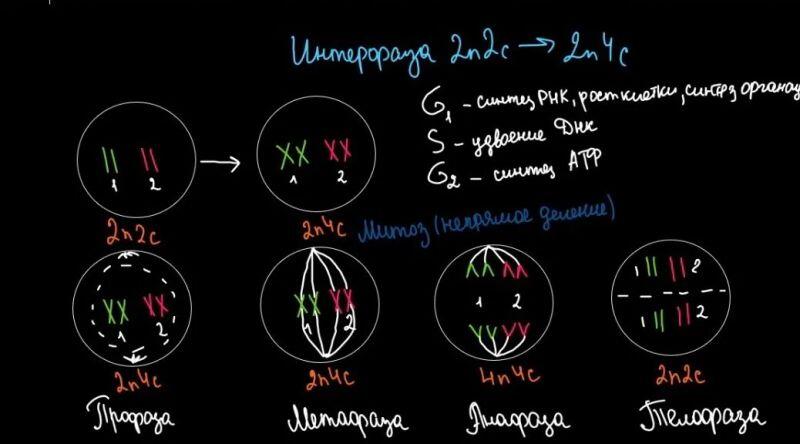 Интерфаза 2n2c → 2n4c
G1 - синтез РНК, рост клетки, синтез органои
S - удвоение ДНК
G2 - синтез АТФ
1 2
1 2
2n2c
2n4c
Митоз (непрямое деление)
1 2
1 2
1 2
1 2
1 2
2n4c
2n4c
4n4c
2n2c
Профаза
Метафаза
Анафаза
Телофаза